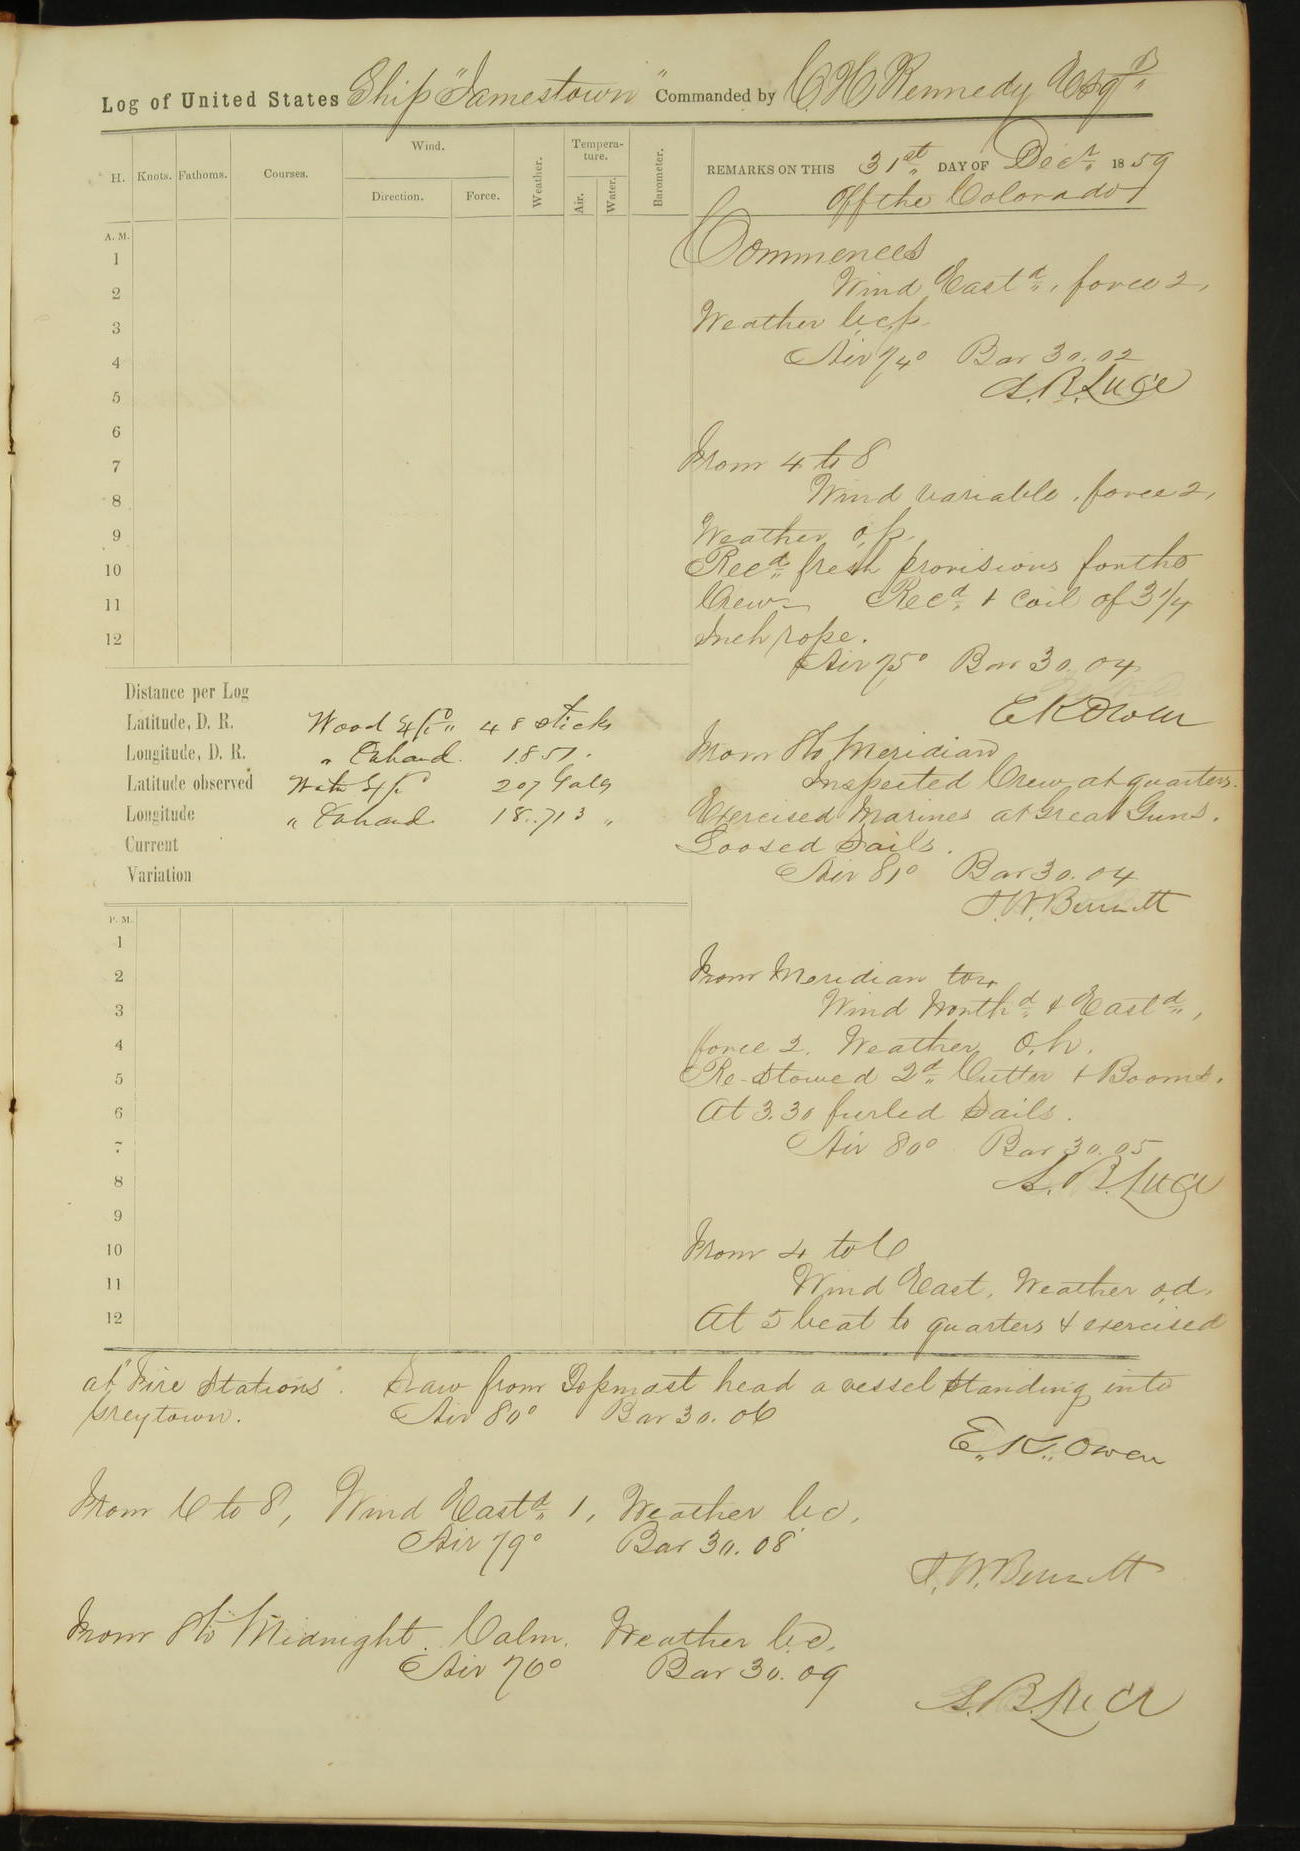 Log of United States Ship "Jamestown" Commanded by C. H. Kennedy Esqr
H. Knots. Fathoms. Courses. Wind. Direction. Force. Weather. Tempera-ture. Air. Water. Barometer.
REMARKS ON THIS 31st DAY OF Decr 1859
Off the Colorado
A. M.
1
2
3
4
5
6
7
8
9
10
11
12
Commences
Wind Eastd, force 2,
Weather b.c.p.
Air 74° Bar 30.02
S. B. Luce
From 4 to 8
Wind variable, force 2,
Weather o.p.
Recd fresh provisions for the
Crew Recd 1 coil of 3 1/4
Inch rope.
Air 75° Bar 30.04
E K Owen
From 8 to Meridian
Inspected Crew at quarters.
Exercised Marines at Great Guns.
Loosed Sails.
Air 81° Bar 30.04
J. W. Bennett
Distance per Log
Latitude, D. R. Wood Expd 48 sticks
Longitude, D. R. " On hand 1851.
Latitude observed Watr Expd 207 Galls
Longitude " On hand 18.713 "
Current
Variation
P. M.
1
2
3
4
5
6
7
8
9
10
11
12
From Meridian to 4
Wind Northd & Eastd,
force 2. Weather o.h.
Re-stowed 2d Cutter & Booms.
At 3.30 furled Sails.
Air 80° Bar 30.05
S. B. Luce
From 4 to 6
Wind East, Weather o.d.
At 5 beat to quarters & exercised
at "Fire Stations". Saw from Topmast head a vessel standing into
Greytown. Air 80° Bar 30.06
E. K. Owen
From 6 to 8, Wind Eastd 1, Weather b.c.
Air 79° Bar 30.08
J. W. Bennett
From 8 to Midnight. Calm. Weather b.c.
Air 76° Bar 30.09
S. B. Luce